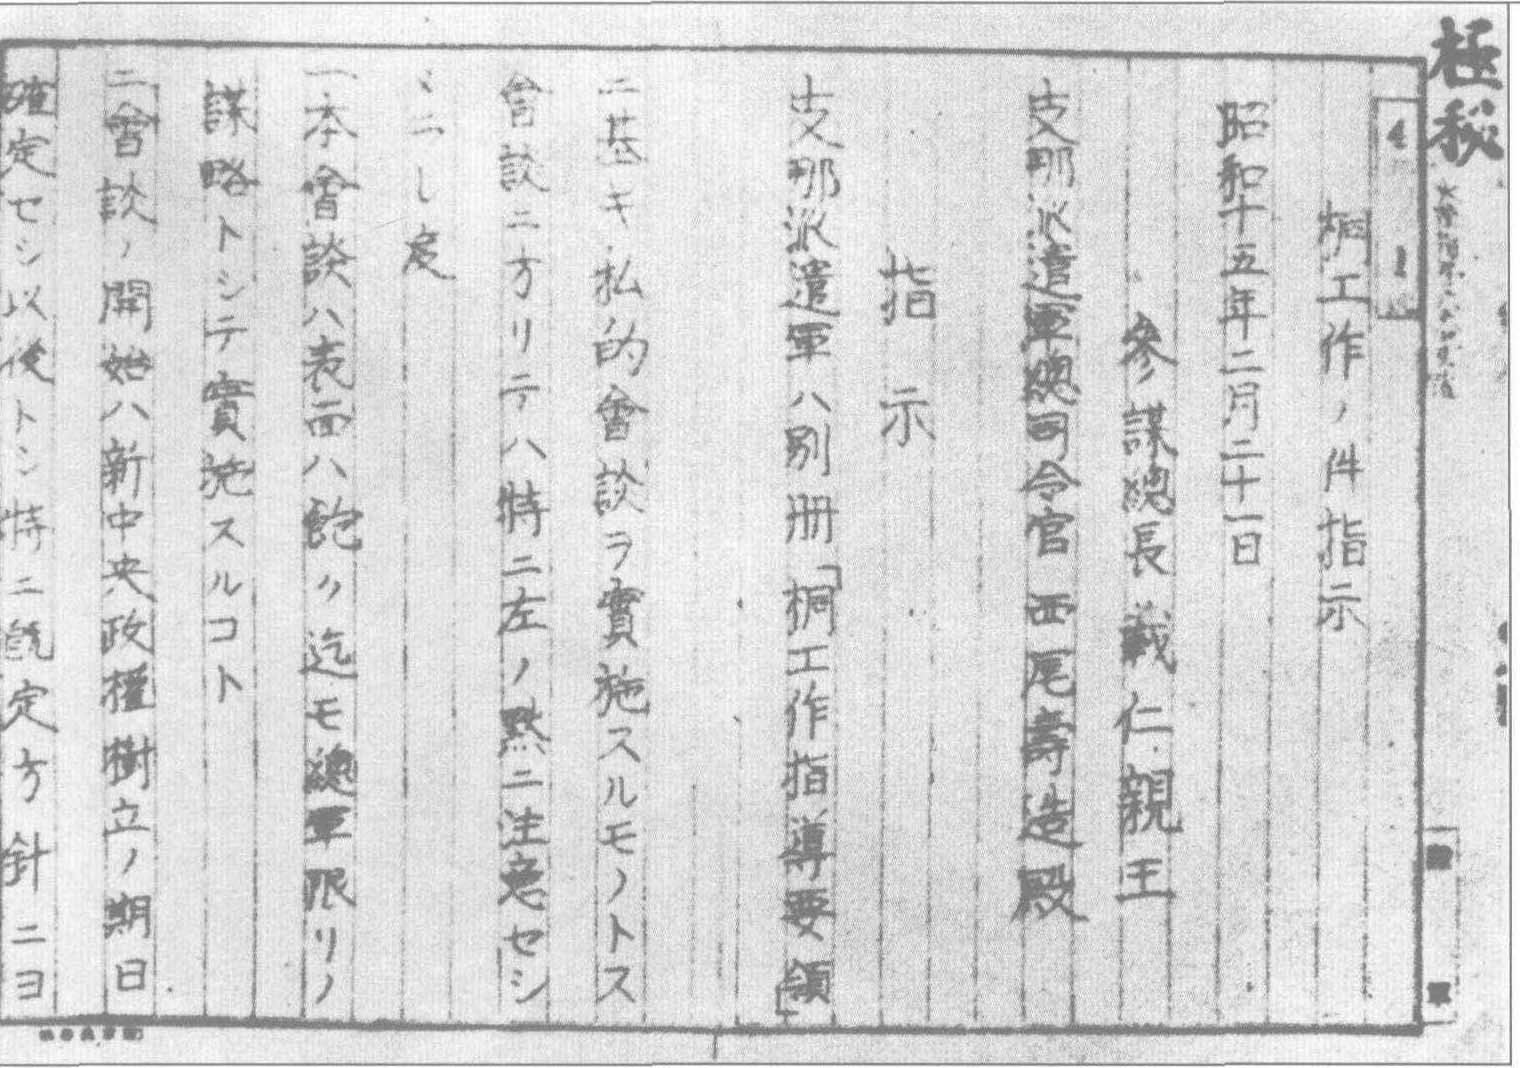 極秘
4 1
桐工作ノ件指示
昭和十五年二月二十一日
參謀總長 載仁親王
支那派遣軍總司令官 西尾壽造殿
指示
支那派遣軍ハ別册「桐工作指導要領」
ニ基キ私的會談ヲ實施スルモノトス
會談ニ方リテハ特ニ左ノ點ニ注意セシ
メラレ度
一本會談ハ表面ハ飽ク迄モ總軍限リノ
謀略トシテ實施スルコト
二會談ノ開始ハ新中央政權樹立ノ期日
確定セシ以後トシ特ニ既定方針ニヨ
軍